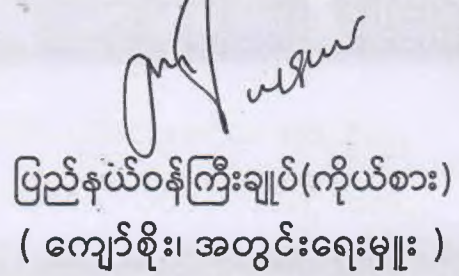 ပြည်နယ်ဝန်ကြီးချုပ်(ကိုယ်စား)
( ကျော်စိုး၊ အတွင်းရေးမှူး )